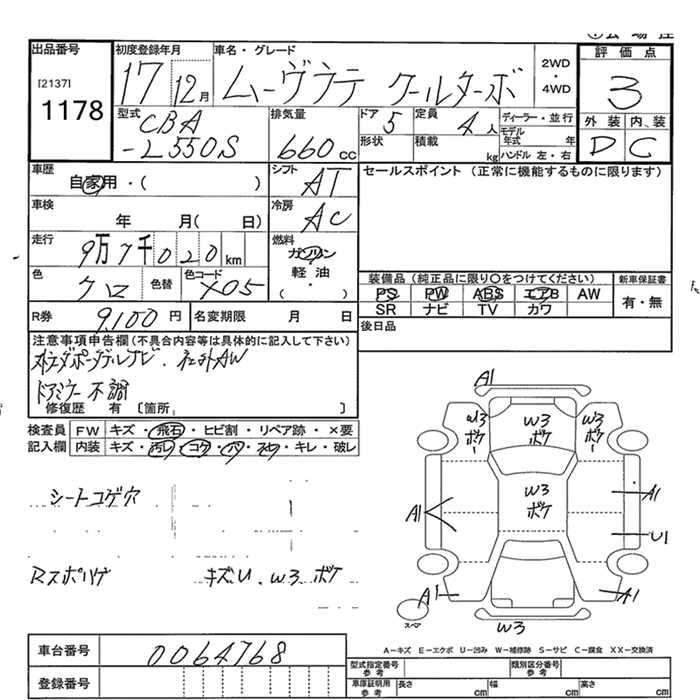 出品番号
[2137]
1178
初度登録年月
17 12月
車名・グレード
ムーヴラテ クールターボ
2WD
・
4WD
評価点
3
外装 内、装
D C
型式
CBA
-L550S
排気量
660 cc
ドア
5
定員
4 人
ディーラー・並行
モデル年式 年
ハンドル 左・右
形状
積載 kg
車歴
自家用・( )
シフト
AT
セールスポイント (正常に機能するものに限ります)
車検
年 月( 日)
冷房
AC
走行
9万7千020km
燃料
ガソリン
軽油
( ・ )
色
クロ
色替
色コード
X05
装備品 (純正品に限り〇をつけてください)
PS PW ABS エアB AW
SR ナビ TV カワ
新車保証書
有・無
R券
9,100円
名変期限 月 日
後日品
注意事項申告欄(不具合内容等は具体的に記入して下さい)
ドアミラー不調
修復歴 有 [箇所 ]
検査員
記入欄
FW キズ・飛石・ヒビ割・リペア跡・×要
内装 キズ・汚レ・コゲ・ハゲ・スレ・キレ・破レ
シートコゲ穴
Rスポハゲ キズU、W3ボケ
A1
W3
ボケ
W3
ボケ
W3
ボケ
W3
ボケ
A1
A1
U1
A1
A1
スペア
W3
A-キズ E-エクボ U-凹み W-補修跡 S-サビ C-腐食 XX-交換済
車台番号
0064768
登録番号
型式指定番号
参考
類別区分番号
参考
車庫証明用
参考
長さ cm
幅 cm
高さ cm